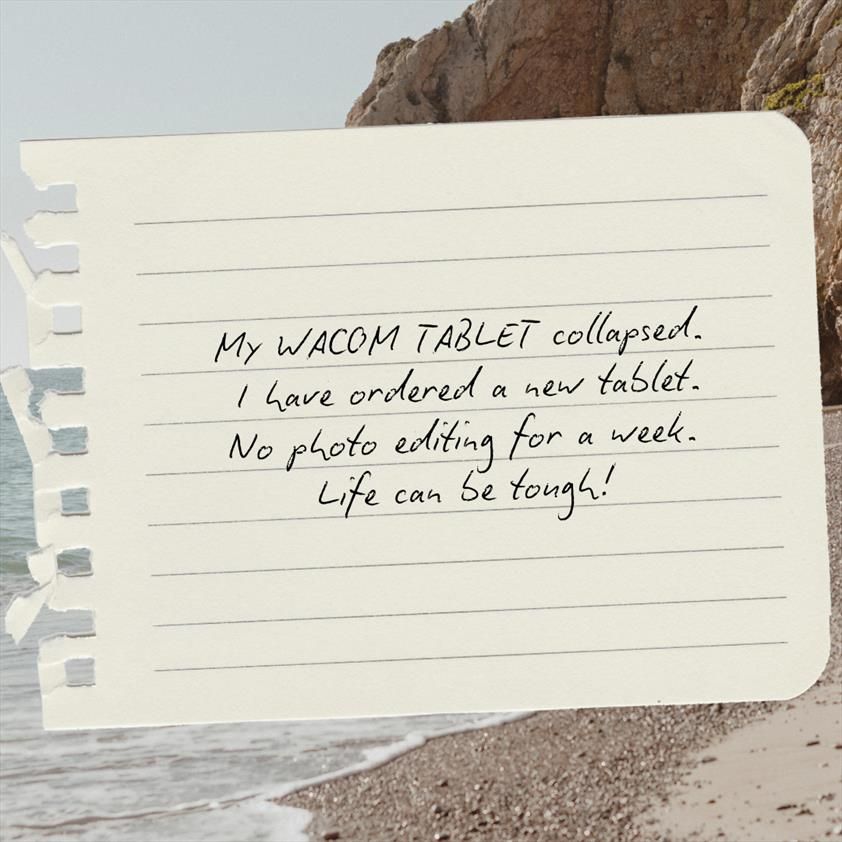 My WACOM TABLET collapsed.
I have ordered a new tablet.
No photo editing for a week.
Life can be tough!